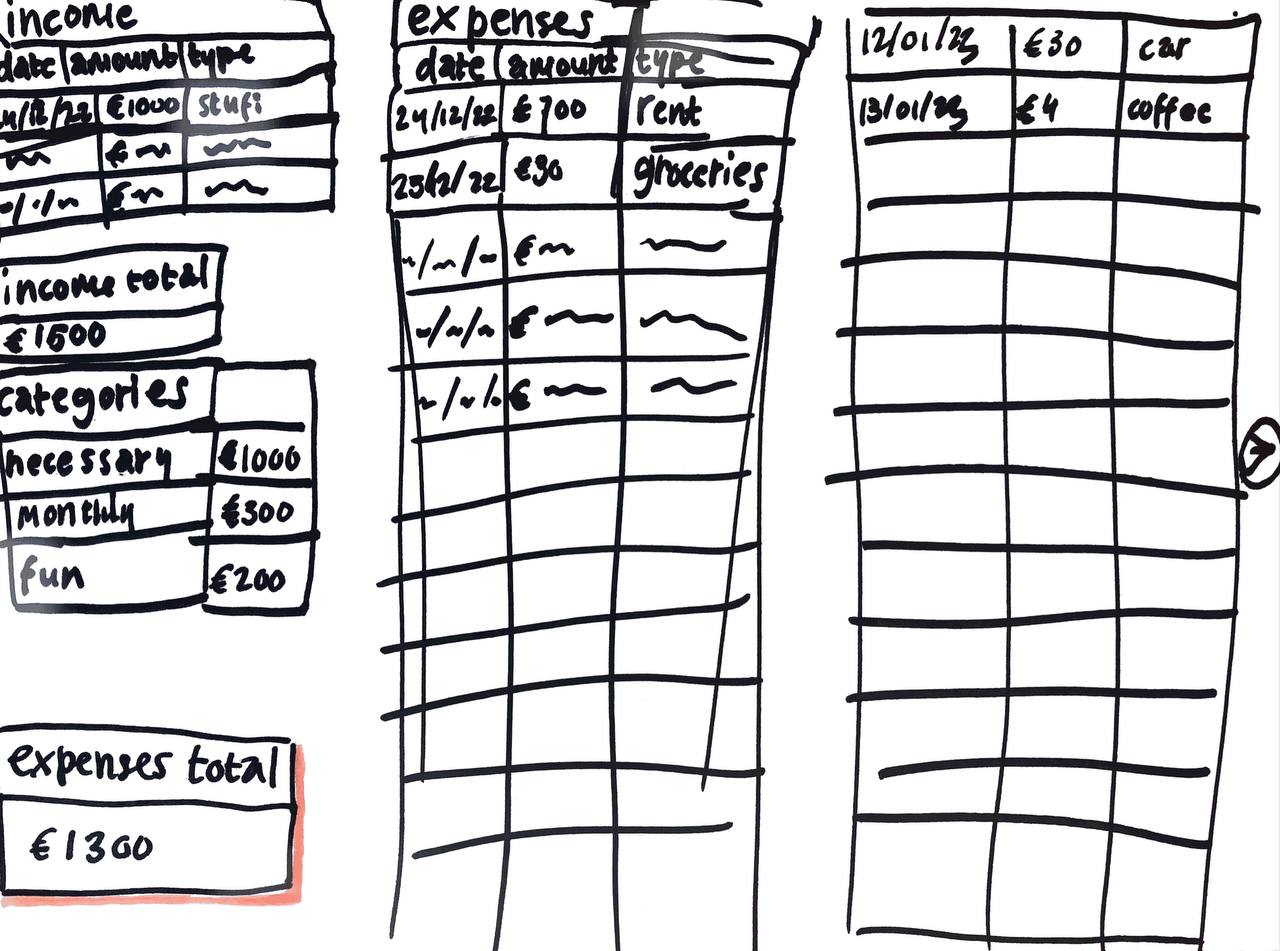 income
date amount type
24/12/22 €1000 stufi
income total
€1500
categories
necessary €1000
monthly €300
fun €200
expenses total
€1300
expenses
date amount type
24/12/22 €700 rent
25/12/22 €30 groceries
12/01/23 €30 car
13/01/23 €4 coffee